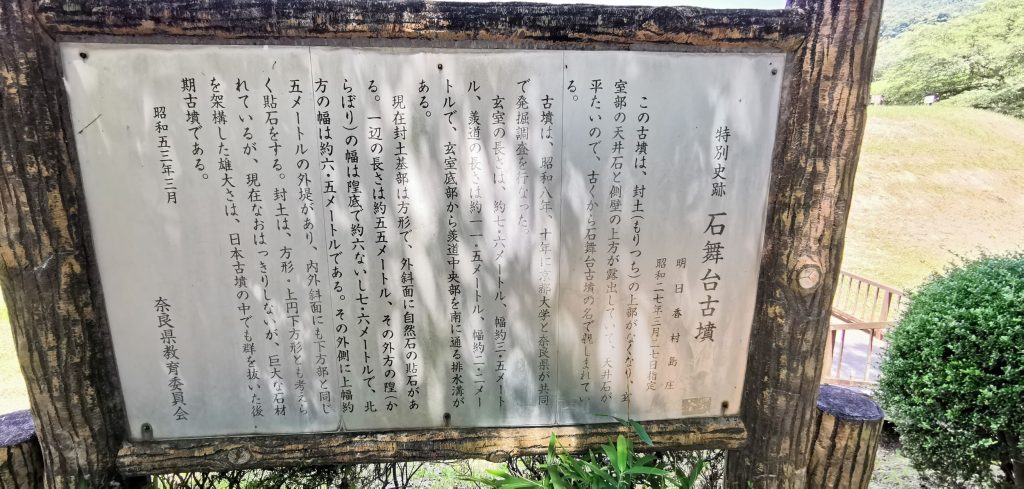 特別史跡 石舞台古墳
明日香村島庄
昭和二七年三月二七日指定
この古墳は、封土(もりつち)の上部がなくなり、玄
室部の天井石と側壁の上方が露出していて、天井石が
平たいので、古くから石舞台古墳の名で親しまれてい
る。
古墳は、昭和八年、十年に京都大学と奈良県が共同
で発掘調査を行なった。
玄室の長さは、約七・六メートル、幅約三・五メート
ル、羨道の長さは約一一・五メートル、幅約二・二メー
トルで、玄室底部から羨道中央部を南に通る排水溝が
ある。
現在封土基部は方形で、外斜面に自然石の貼石があ
る。一辺の長さは約五五メートル、その外方の隍(か
らぼり)の幅は隍底で約六ないし七・六メートルで、北
方の幅は約六・五メートルである。その外側に上幅約
五メートルの外堤があり、内外斜面にも下方部と同じ
く貼石をする。封土は、方形・上円下方形とも考えら
れているが、現在なおはっきりしないが、巨大な石材
を架構した雄大さは、日本古墳の中でも群を抜いた後・
期古墳である。
昭和五三年三月
奈良県教育委員会